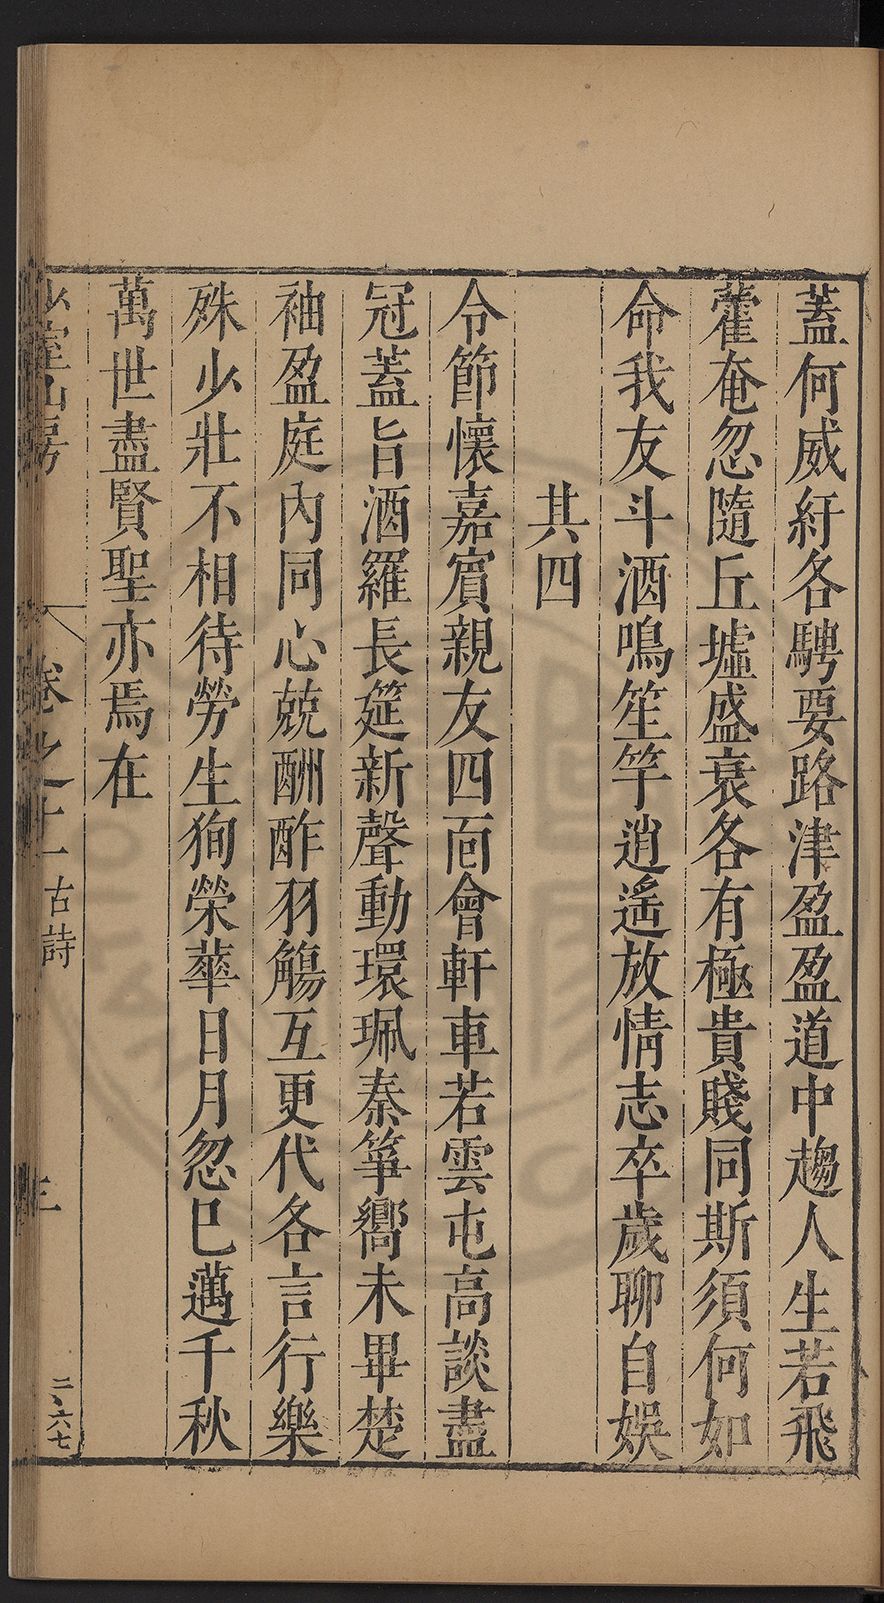 蓋何威紆各騁要路津盈盈道中趨人生若飛
藿奄忽隨丘墟盛衰各有極貴賤同斯須何如
命我友斗酒鳴笙竽逍遙放情志卒歲聊自娛
其四
令節懷嘉賓親友四面會軒車若雲屯高談盡
冠蓋旨酒羅長筵新聲動環珮秦箏嚮未畢楚
袖盈庭內同心兢酬酢羽觴互更代各言行樂
殊少壯不相待勞生狥榮華日月忽已邁千秋
萬世盡賢聖亦焉在
少室山房
卷之十一
古詩
三
二、六七